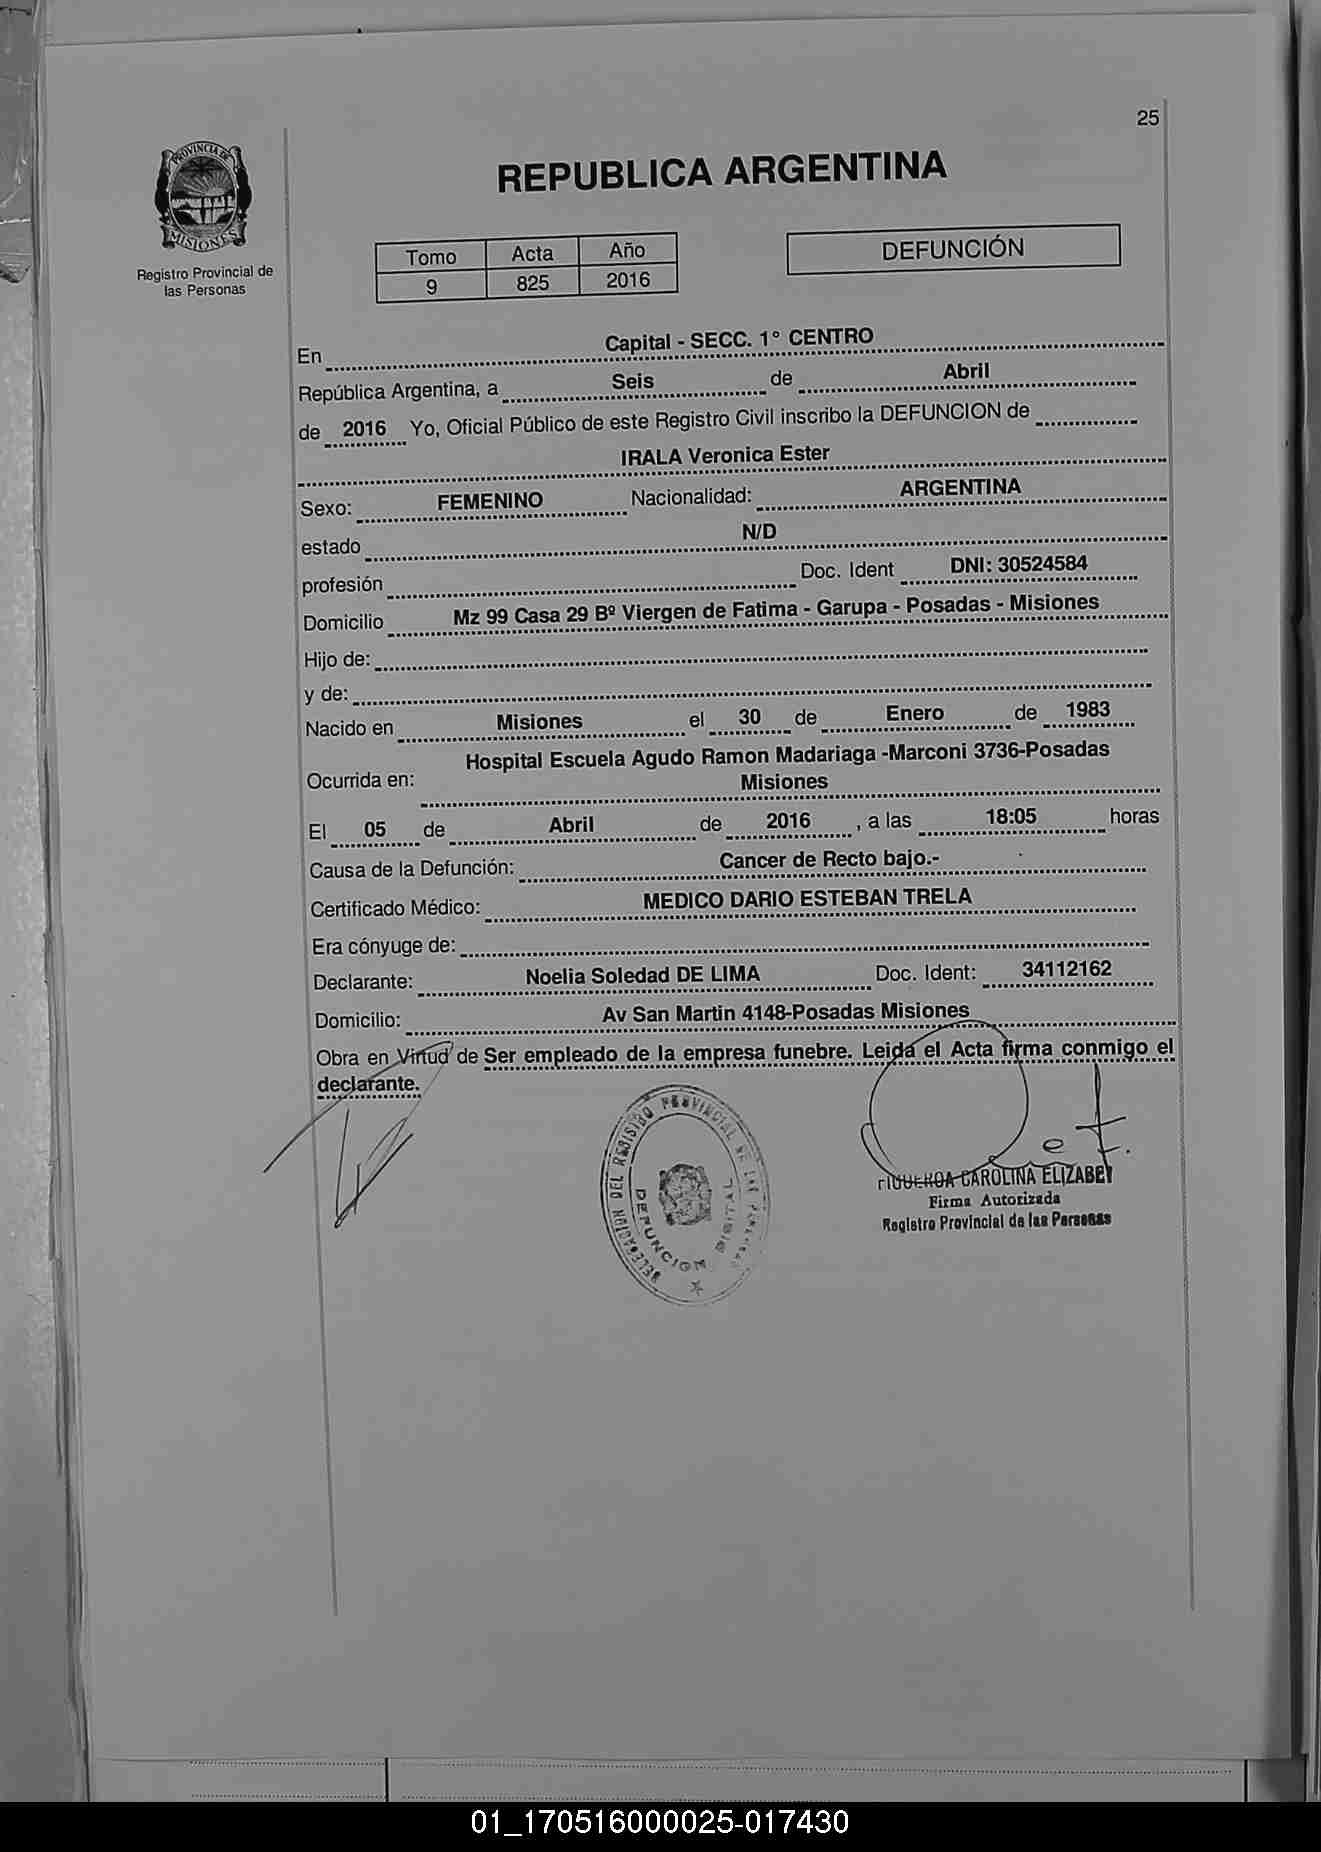 25
PROVINCIA DE
MISIONES
Registro Provincial de
las Personas
REPUBLICA ARGENTINA
Tomo Acta Año
9 825 2016
DEFUNCIÓN
En Capital - SECC. 1° CENTRO
República Argentina, a Seis de Abril
de 2016 Yo, Oficial Público de este Registro Civil inscribo la DEFUNCION de
IRALA Veronica Ester
Sexo: FEMENINO Nacionalidad: ARGENTINA
estado N/D
profesión Doc. Ident DNI: 30524584
Domicilio Mz 99 Casa 29 Bº Viergen de Fatima - Garupa - Posadas - Misiones
Hijo de:
y de:
Nacido en Misiones el 30 de Enero de 1983
Ocurrida en: Hospital Escuela Agudo Ramon Madariaga -Marconi 3736-Posadas
Misiones
El 05 de Abril de 2016 , a las 18:05 horas
Causa de la Defunción: Cancer de Recto bajo.-
Certificado Médico: MEDICO DARIO ESTEBAN TRELA
Era cónyuge de:
Declarante: Noelia Soledad DE LIMA Doc. Ident: 34112162
Domicilio: Av San Martin 4148-Posadas Misiones
Obra en Virtud de Ser empleado de la empresa funebre. Leida el Acta firma conmigo el
declarante.
DELEGACION DEL REGISTRO PROVINCIAL DE LAS PERSONAS
DEFUNCION DIGITAL
FIGUEROA CAROLINA ELIZABET
Firma Autorizada
Registro Provincial de las Personas
01_170516000025-017430